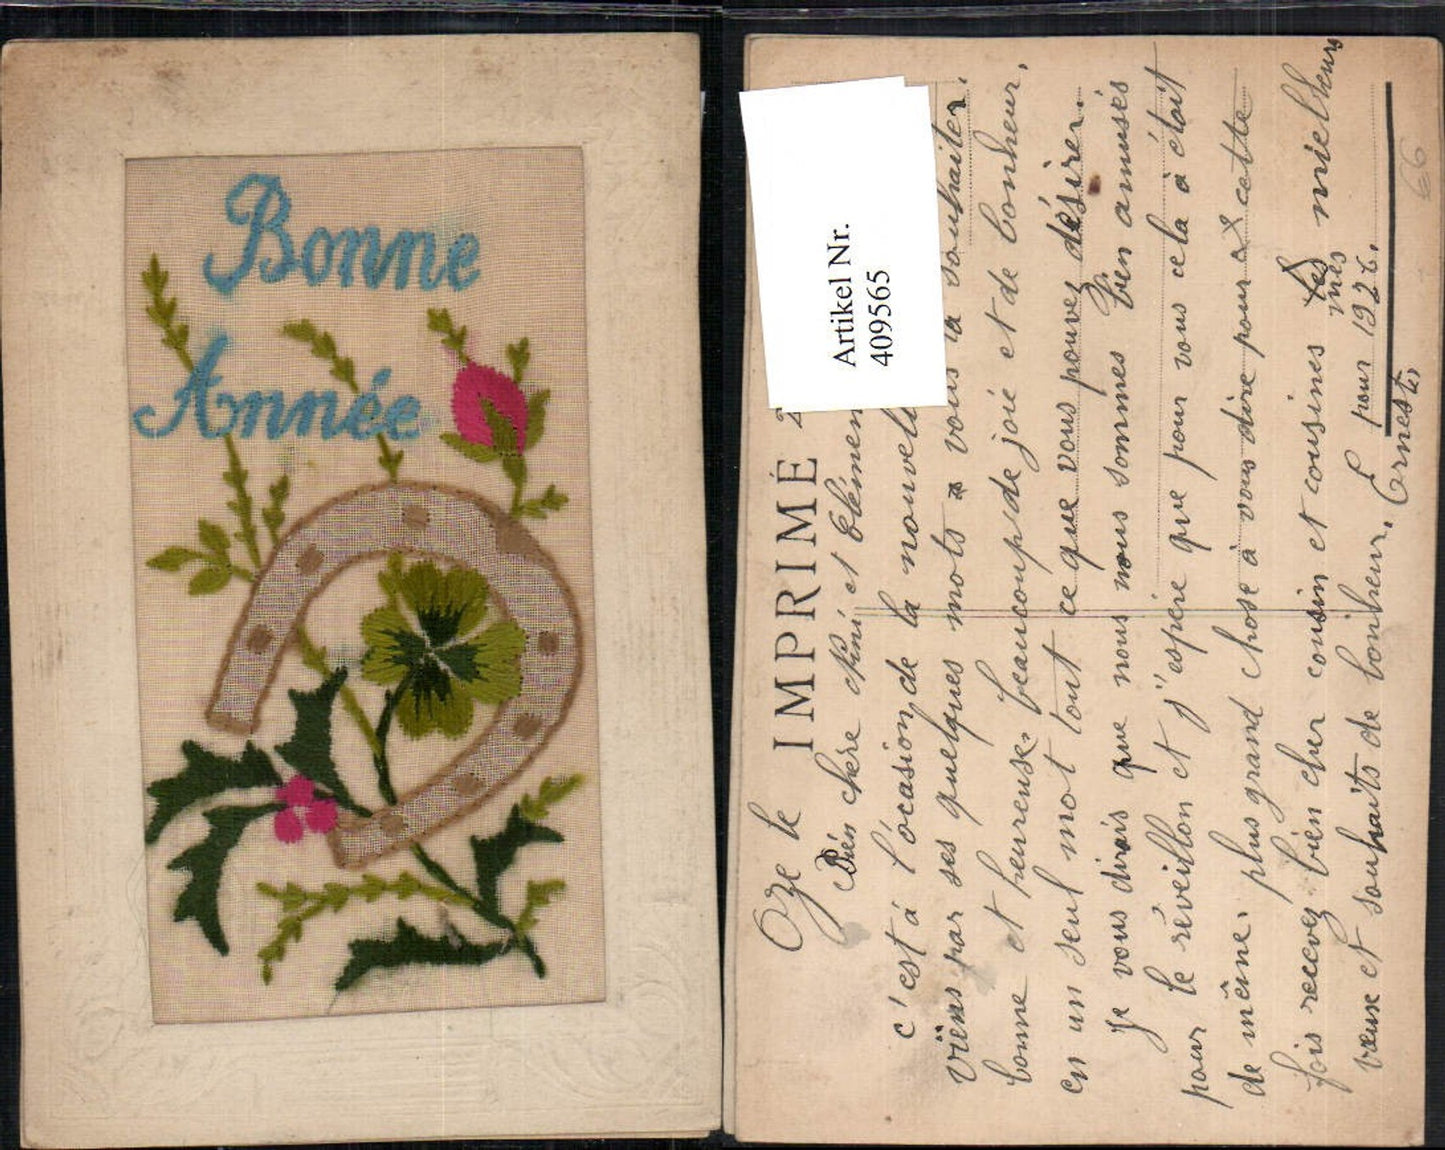 Bonne
Année
Artikel Nr.
409565
IMPRIMÉ
Oze le
Bien chère Nini et Clémen
c'est à l'ocasion de la nouvell
viens par ses quelques mots à vous la souhaiter.
bonne et heureuse, beaucoup de joie et de bonheur,
en un seul mot tout ce que vous pouvez désirer.
Je vous dirais que nous nous sommes bien amusés
pour le réveillon et j'espère que pour vous cela à était
de même. plus grand chose à vous dire pour cette
fois recevez bien cher cousin et cousines mes mielleurs
vœux et souhaits de bonheur. pour 1927.
Ernest
66